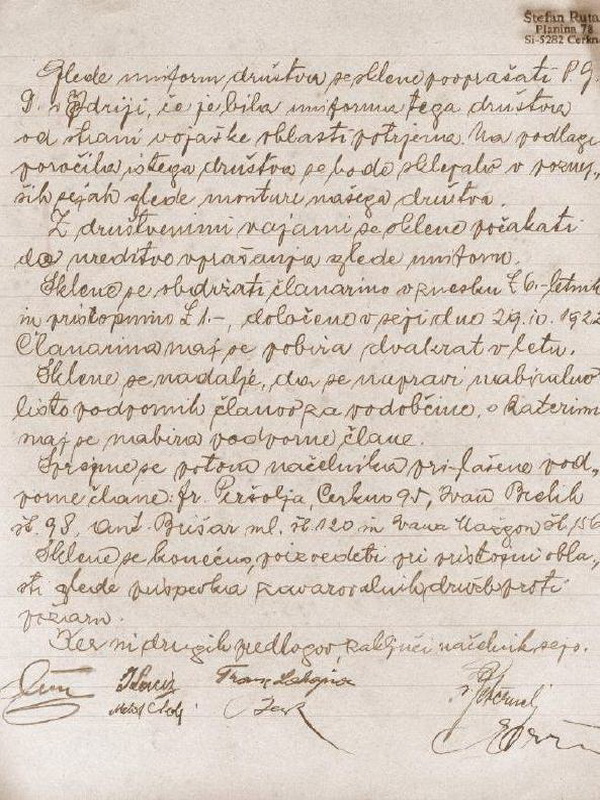 Štefan Ruta
Planina 78
SI-5282 Cerkn
Glede uniform društva se sklene povprašati P. G.
D. v Idriji, če je bila uniforma tega društva
od strani vojaške oblasti potrjena. Na podlagi
poročila istega društva se bode sklepalo v pozny,
ših sejah glede monture našega društva.
Z društvenimi vajami se sklene počakati
do ureditvo vprašanja glede uniform.
Sklene se obdržati članarino v znesku £ 6.- letnih
in pristopnino £ 1.-, določeno v seji dne 29.10.1922
Članarina naj se pobira dvakrat v letu.
Sklene se nadalje, da se napravi nabiralno
listo podpornih članov za vodobčine, s katerim
naj se nabira podporne člane.
Sprejme se potom načelnika priglašene pod,
porne člane: fr. Peršolja, Cerkno 95, Ivan Brelih
št. 98, Ant. Bušar ml. št. 120 in Ivana št. 156
Sklene se konečno, poizvedeti pri pristojni obla,
sti glede prispevka zavarovalnih družb proti
požaru.
Ker ni drugih predlogov, zaključi načelnik sejo.